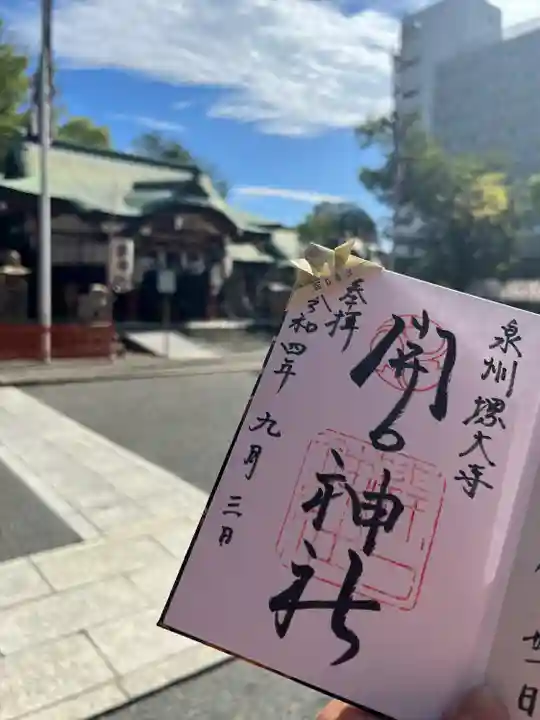 泉州堺大寺
開口神社
奉拝
令和四年九月三日
日